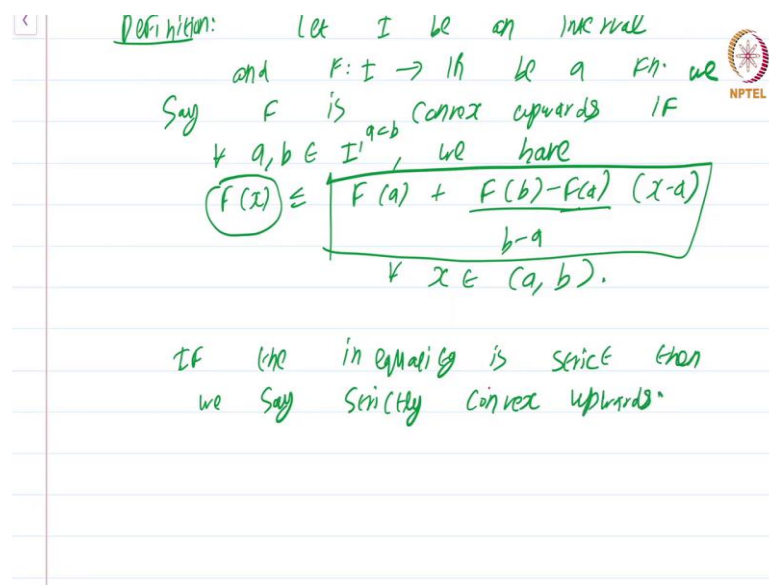 Definition: Let I be an interval
and F: I → ℝ be a Fn. we
NPTEL
Say F is convex upwards if
∀ a, b ∈ I, a<b, we have
F(x) ≤ F(a) + \frac{F(b)-F(a)}{b-a} (x-a)
∀ x ∈ (a, b).
If the inequality is strict then
we say strictly convex upwards.